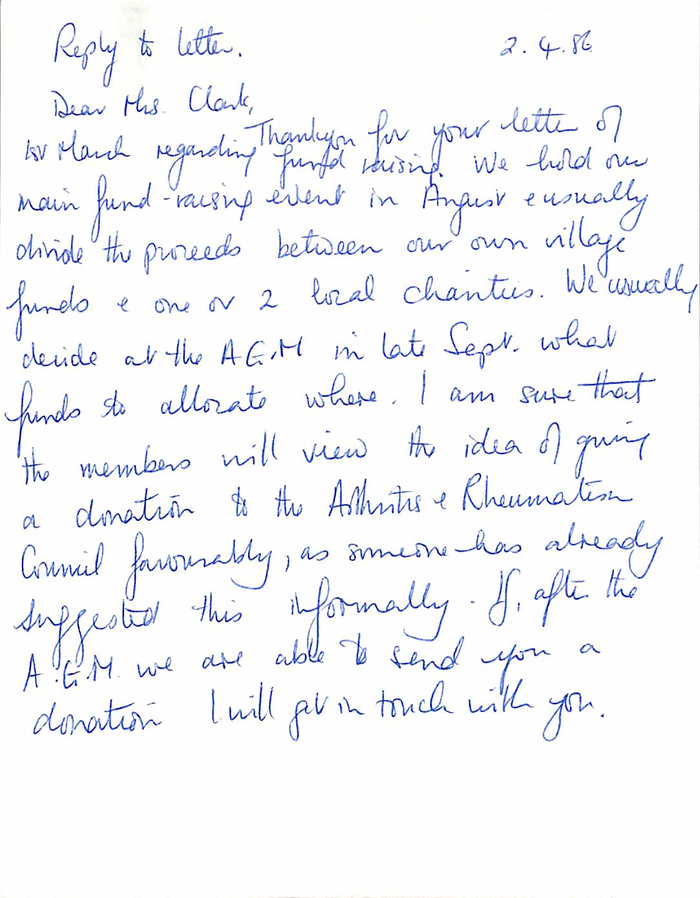 Reply to letter. 2.4.86
Dear Mrs. Clark,
Thankyou for your letter of
1st March regarding fund raising. We hold our
main fund-raising event in August & usually
divide the proceeds between our own village
funds & one or 2 local charities. We usually
decide at the A.G.M in late Sept. what
funds to allocate where. I am sure that
the members will view the idea of giving
a donation to the Arthritis & Rheumatism
Council favourably, as someone has already
suggested this informally. If, after the
A.G.M. we are able to send you a
donation I will get in touch with you.